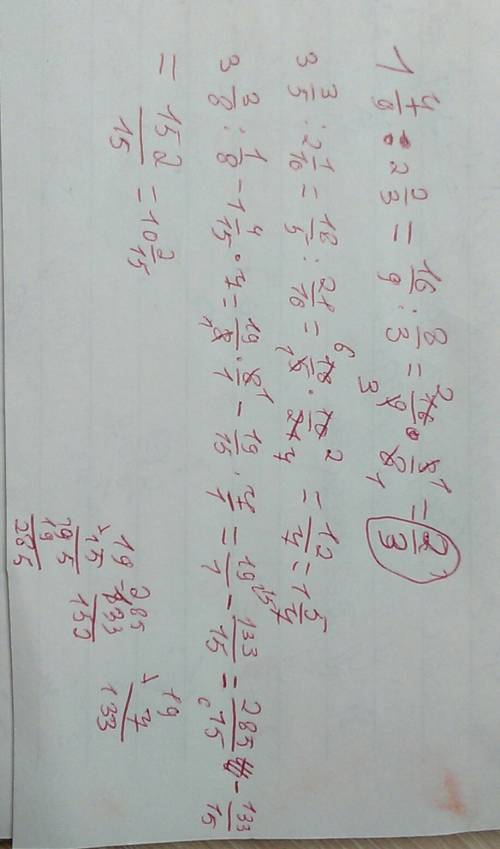 1 7/9 : 2 2/3 = 16/9 : 8/3 = 16/9 · 3/8 = 2/3
3 3/5 : 2 1/10 = 18/5 : 21/10 = 18/5 · 10/21 = 12/7 = 1 5/7
3 3/8 : 1/8 - 1 4/15 · 7 = 19/8 · 8/1 - 19/15 · 7/1 = 19/1 - 133/15 = 285/15 - 133/15
= 152/15 = 10 2/15
19
15
95
19
285
285
133
152
19
7
133